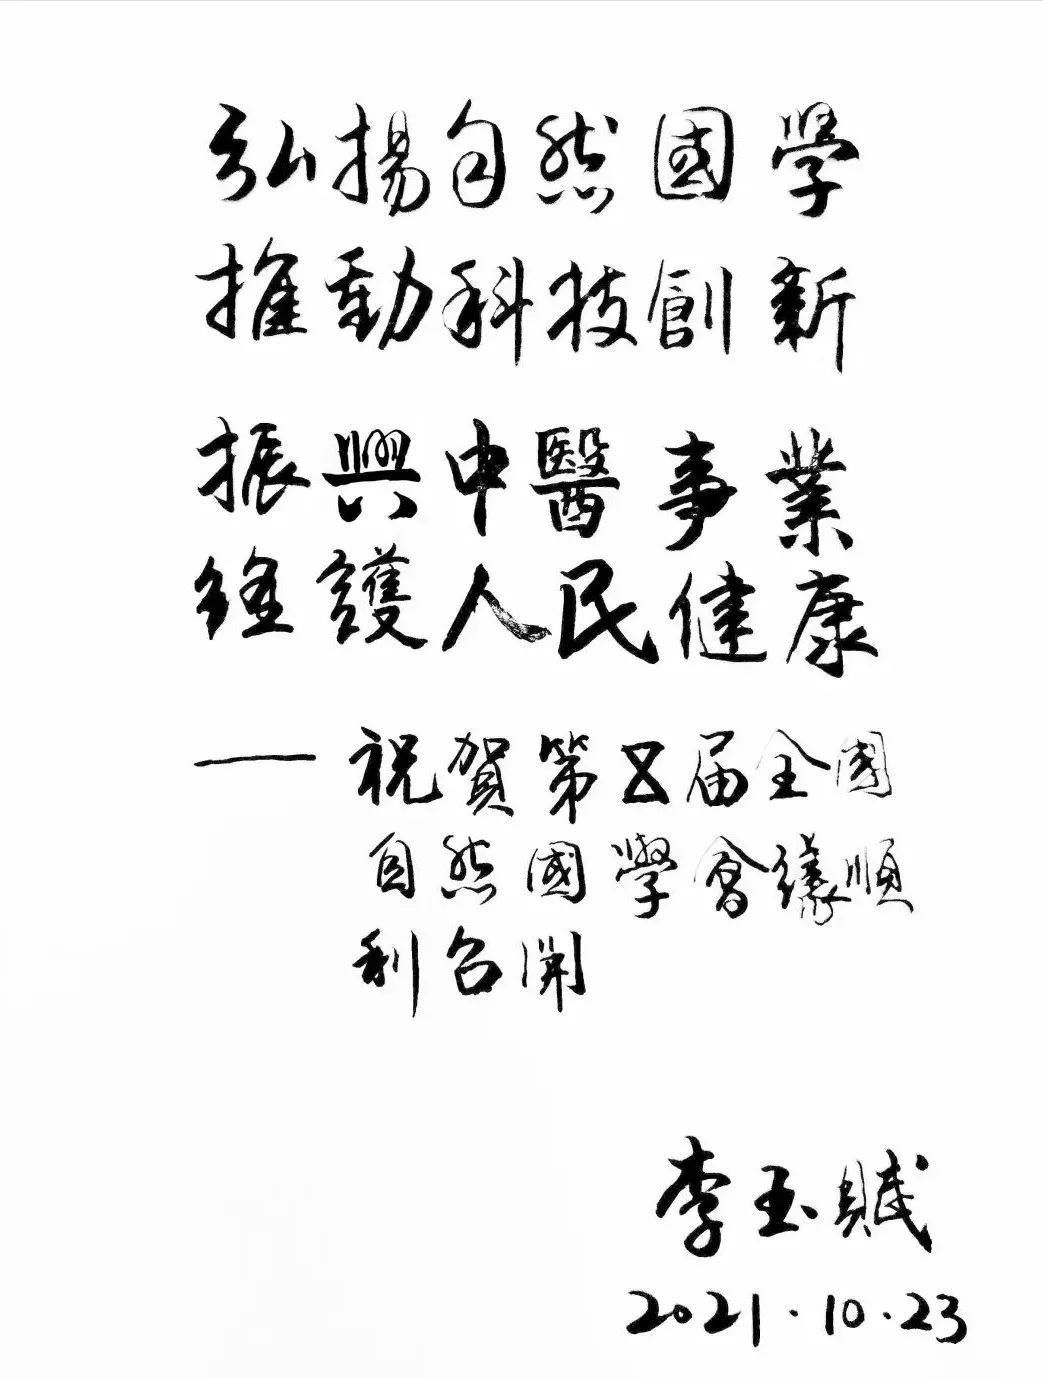 弘揚自然國學
推動科技創新
振興中醫事業
維護人民健康
—祝賀第五届全國
自然國學會議順
利召開
李玉賦
2021·10·23